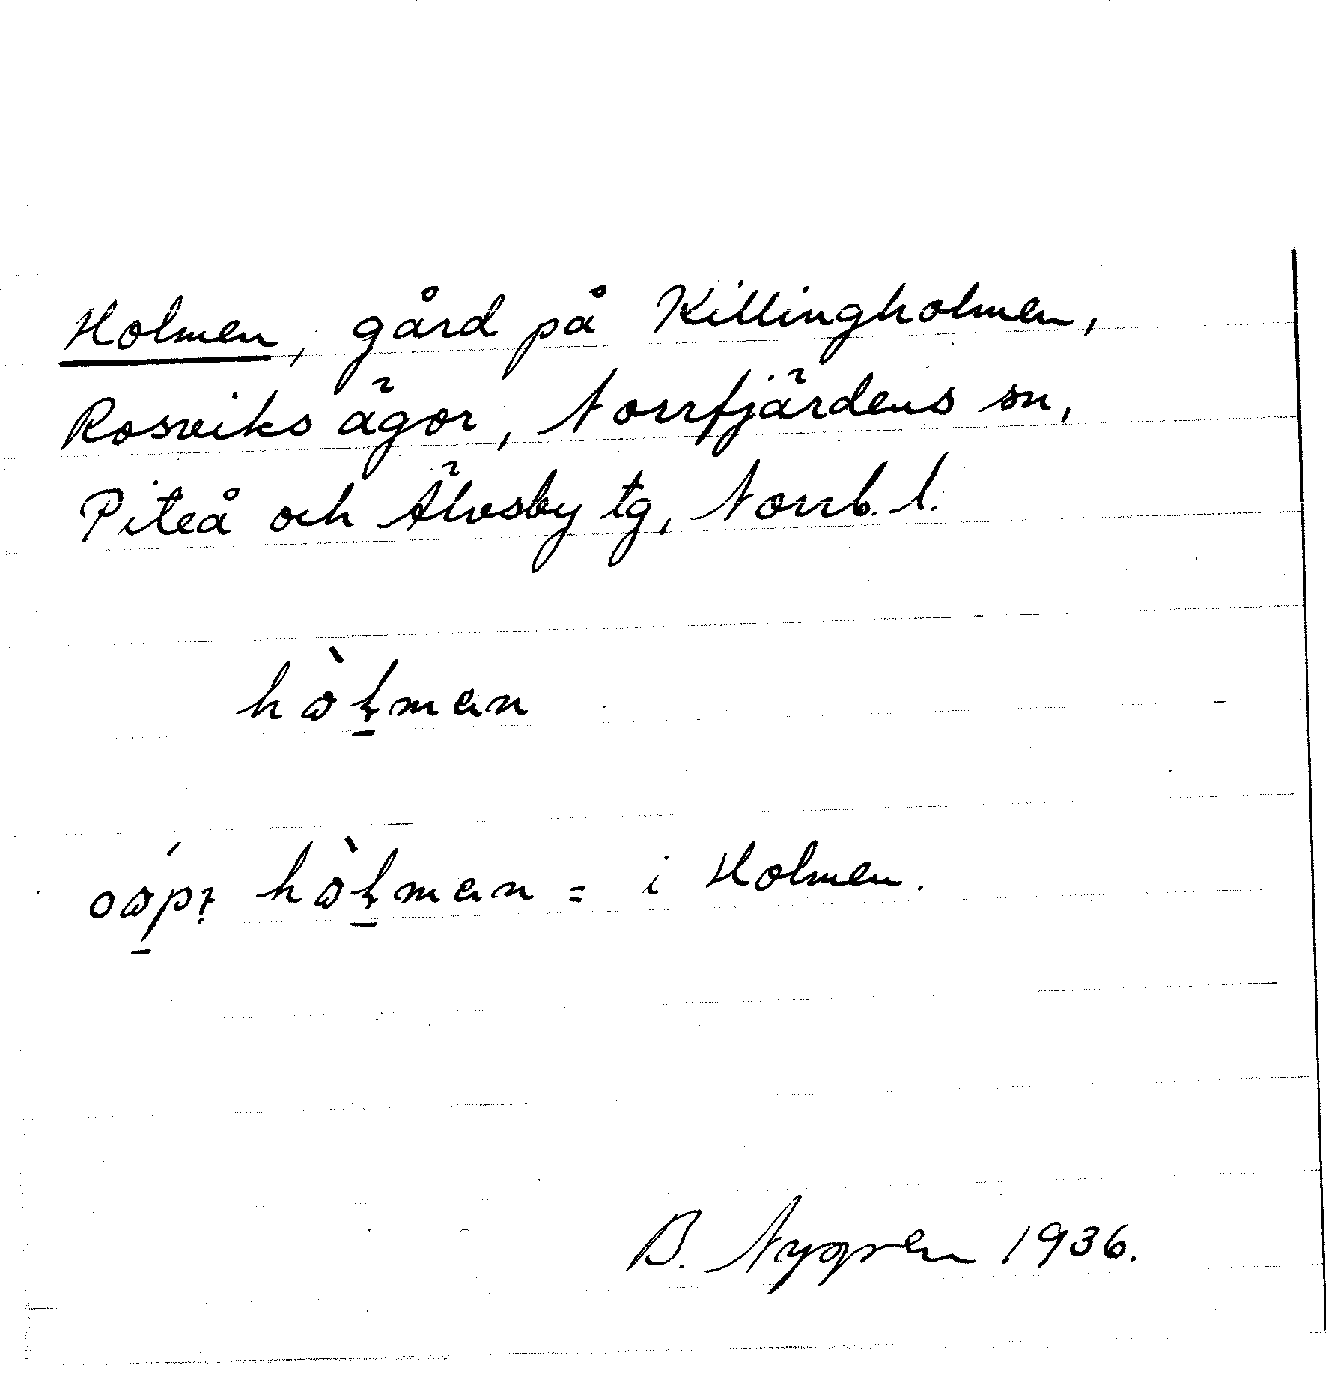 Holmen, gård på Killingholmen,
Rosviks ägor, Norrfjärdens sn,
Piteå och Älvsby tg, Norrb. l.
hòḷman
oápı hòḷman = i Holmen.
B. Nygren 1936.